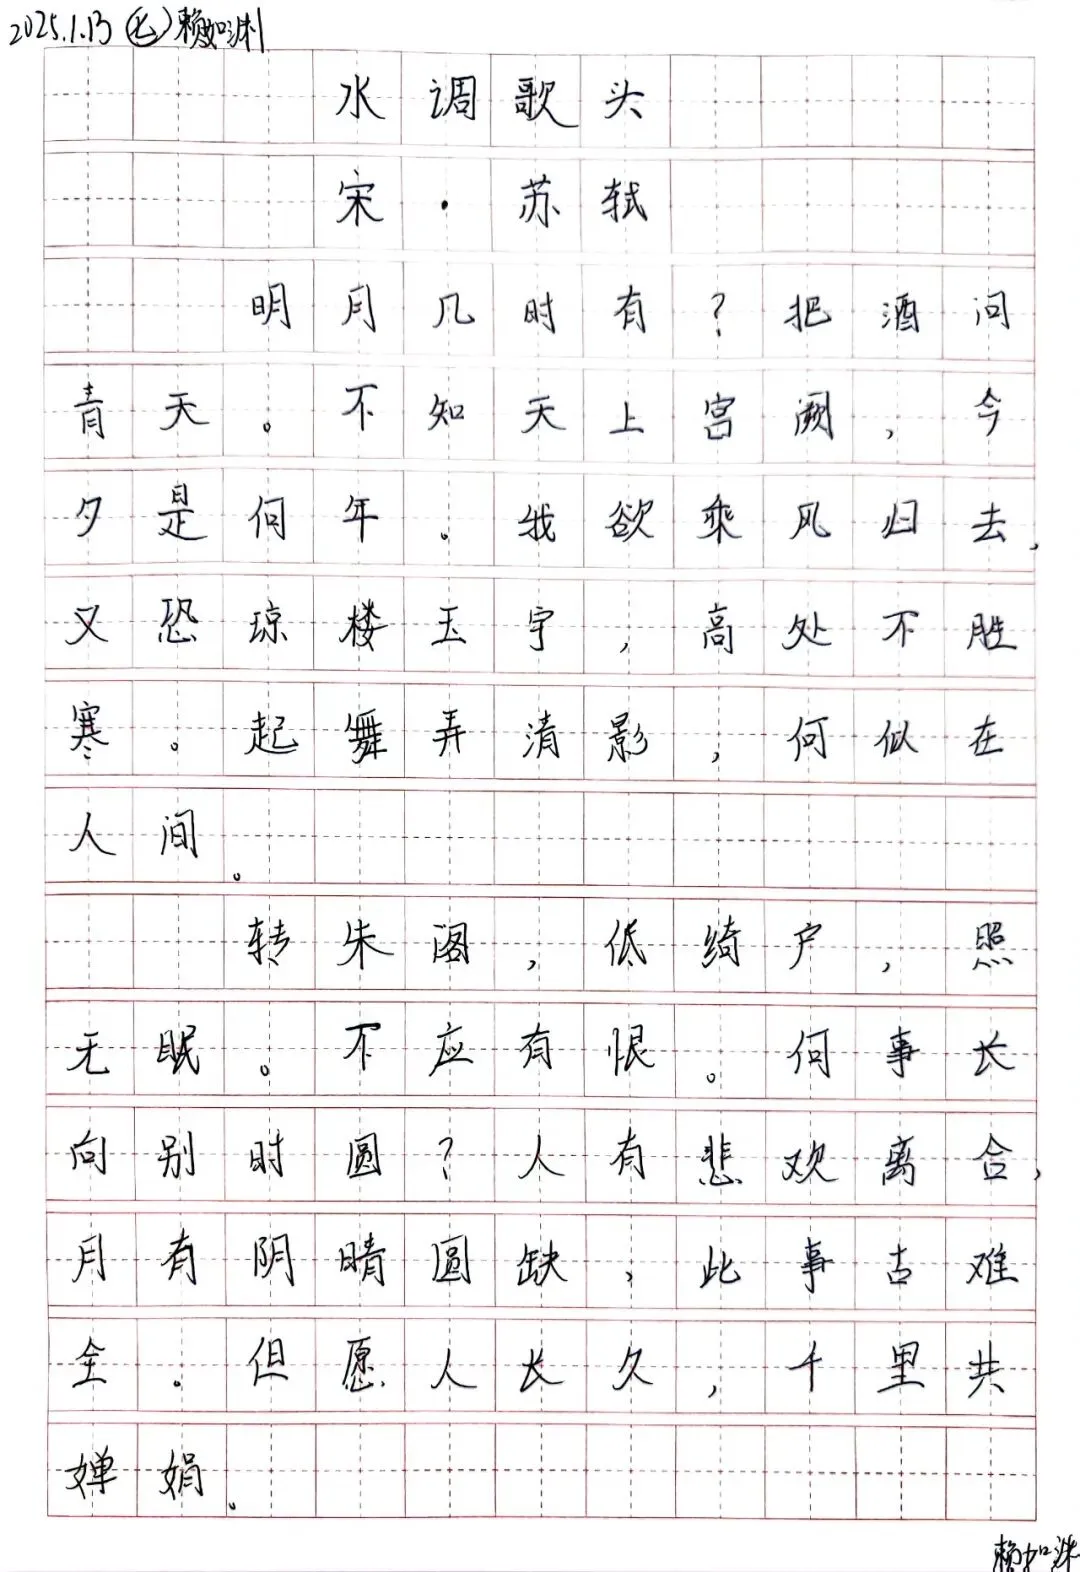 2025.1.13 (七) 赖如洙
水调歌头
宋·苏轼
明月几时有?把酒问
青天。不知天上宫阙,今
夕是何年。我欲乘风归去,
又恐琼楼玉宇,高处不胜
寒。起舞弄清影,何似在
人间。
转朱阁,低绮户,照
无眠。不应有恨。何事长
向别时圆?人有悲欢离合,
月有阴晴圆缺,此事古难
全。但愿人长久,千里共
婵娟。
赖如洙